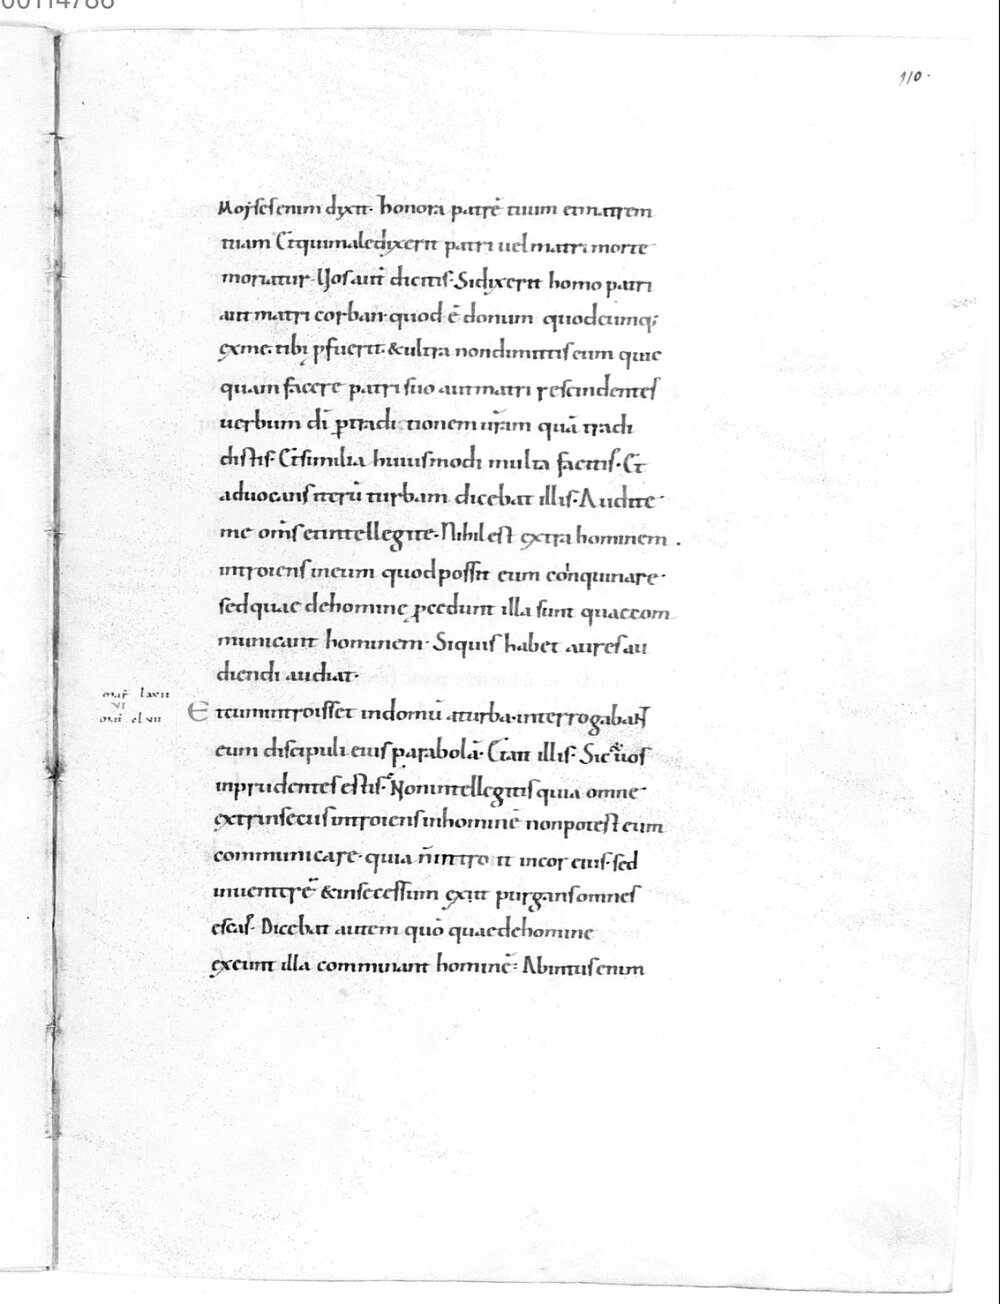 00114786
110.
Moysesenim dixit. honora patrē tuum etmatrem
tuam Etquimaledixerit patri uelmatri morte
moriatur. Uosaut̄ dicitis. Sidixerit homo patri
autmatri corban. quod ē donum quodcumq;
exme. tibi ꝓfuerit. &ultra nondimittis eum quic
quam facere patri suo autmatri rescindentes
uerbum dī ꝑtraditionem ur̄am quā tradi
distis. Etsimilia huiusmodi multa facitis. Et
aduocans iterū turbam dicebat illis. Audite
me om̄s etintellegite. Nihil est extra hominem.
introiens ineum quodpossit eum coinquinare.
sedquae dehomine ꝓcedunt illa sunt quaecom
municant hominem. Siquis habet aures au
diendi audiat.
mar̄ lxxii
VI
mat̄ clvii
Etcumintroisset indomū aturba. interrogabant
eum discipuli eius parabolā. Etait illis. Sic &uos
inprudentes estis. Nonintellegitis quia omne
extrinsecus introiens inhominē nonpotest eum
communicare. quia n̄introit incor eius. sed
inuentrē &insecessum exiit purgans omnes
escas. Dicebat autem quō quaedehomine
exeunt illa communant hominē. Abintus enim